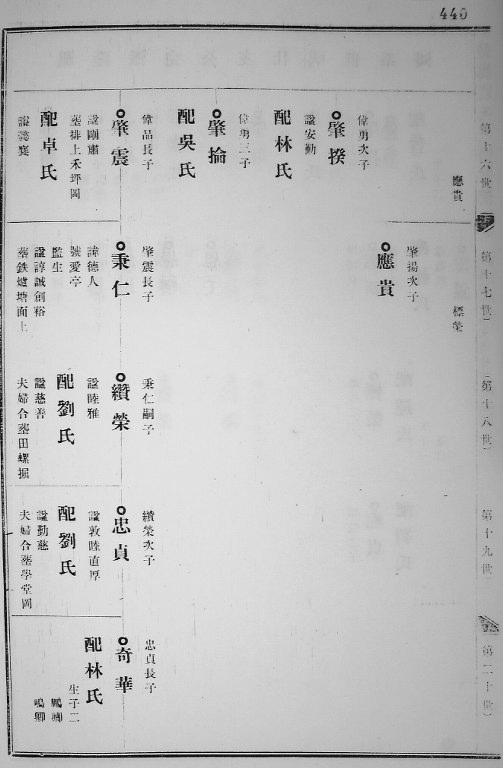 440
第十六世
應貴
偉勇次子
肇揆
諡安勤
配林氏
偉勇三子
肇掄
配吳氏
偉品長子
肇震
諡剛肅
葬排上禾坪岡
配卓氏
第十七世
標榮
肇揚次子
應貴
肇震長子
秉仁
諱德人
號愛亭
監生
諡諄誠創裕
葬鉄爐塘面上
第十八世
秉仁嗣子
纘榮
諡睦雅
配劉氏
諡慈善
夫婦合葬田螺掘
第十九世
纘榮次子
忠貞
諡敦睦直厚
配劉氏
諡勤慈
夫婦合葬學堂岡
第二十世
忠貞長子
奇華
配林氏
生子二
鳴卿